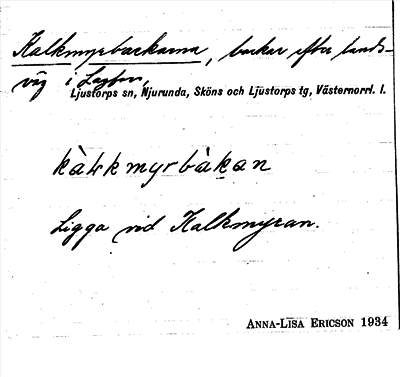 Kalkmyrbackarna, backar efter lands-
väg i
Ljustorps sn, Njurunda, Sköns och Ljustorps tg, Västernorrl. l.
Ligga vid Kalkmyran.
ANNA-LISA ERICSON 1934